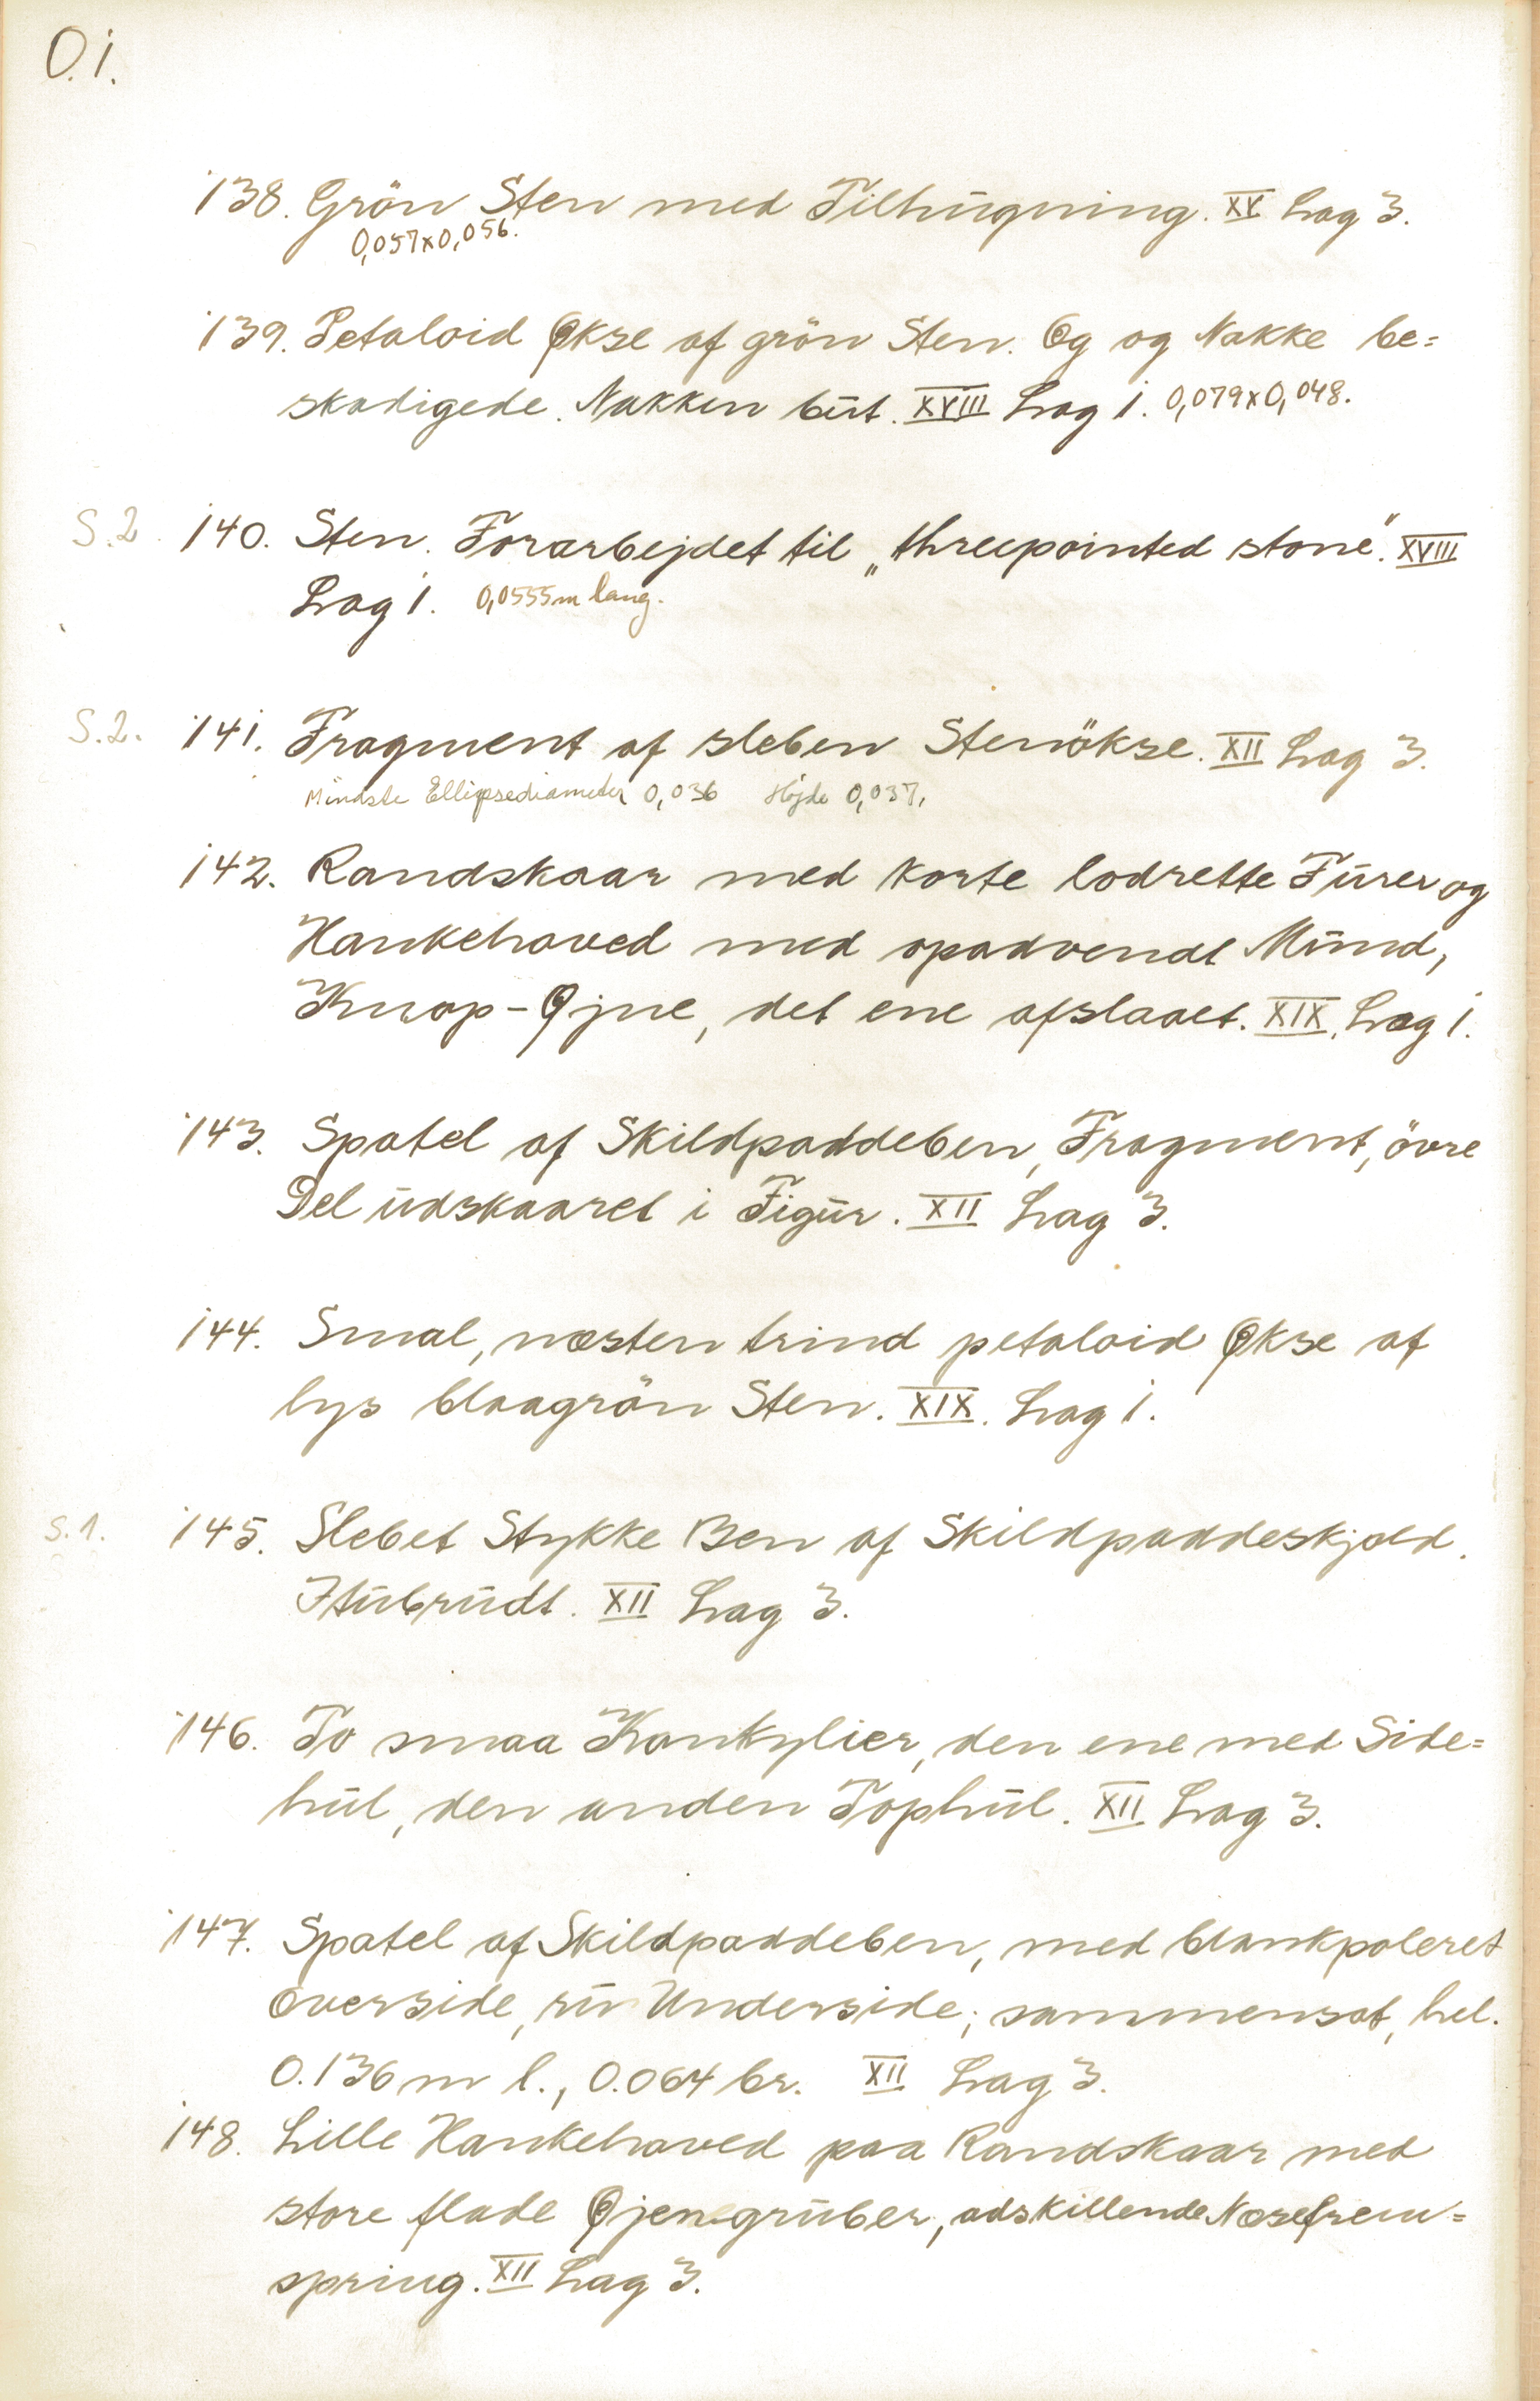 O.1.
138. Grön Sten med Tilhugning. XV Lag 3.
0,057x0,056.
139. Petaloid Økse af grön Sten. Eg og Nakke be=
skadigede. Nakken but. XVIII Lag 1. 0,079x0,048.
S.2. 140. Sten. Forarbejdet til „threepointed stone". XVIII
Lag 1. 0,0555m lang.
S.2. 141. Fragment af sleben Stenökse. XII Lag 3.
Mindste Ellipsediameter 0,036 Højde 0,037.
142. Randskaar med korte lodrette Furer og
Hankehoved med opadvendt Mund,
Knop-Øjne, det ene afslaaet. XIX. Lag 1.
143. Spatel af Skildpaddeben, Fragment, övre
Del udskaaret i Figur. XII Lag 3.
144. Smal, næsten trind petaloid Økse af
lys blaagrön Sten. XIX. Lag 1.
S.1. 145. Slebet Stykke Ben af Skildpaddeskjold.
Itubrudt. XII Lag 3.
146. To smaa Konkylier, den ene med Side=
hul, den anden Tophul. XII Lag 3.
147. Spatel af Skildpaddeben, med blankpoleret
Overside, ru Underside; sammensat, hel.
0.136 m l., 0.064 br. XII Lag 3.
148. Lille Hankehoved paa Randskaar med
store flade Øjengruber, adskillende Næsefrem=
spring. XII Lag 3.